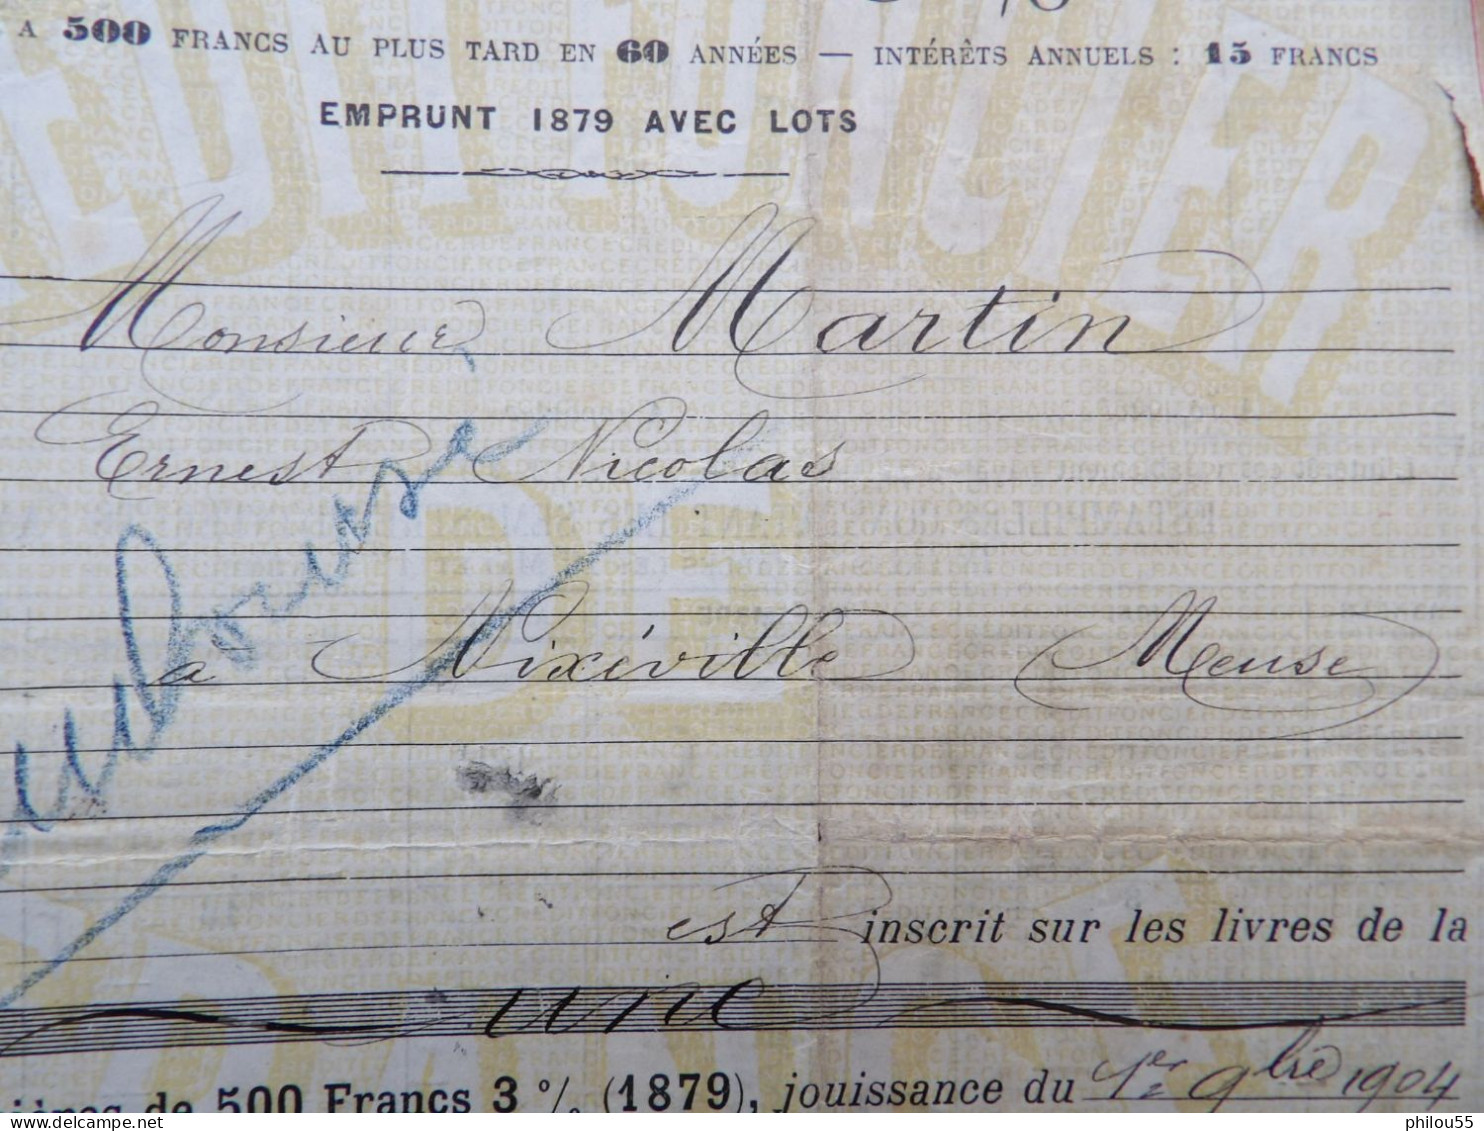 A 500 FRANCS AU PLUS TARD EN 60 ANNÉES — INTÉRÊTS ANNUELS : 15 FRANCS
EMPRUNT 1879 AVEC LOTS
Monsieur Martin
Ernest Nicolas
à Nixéville (Meuse)
est inscrit sur les livres de la
une
de 500 Francs 3 % (1879), jouissance du 1er 9bre 1904
philou55